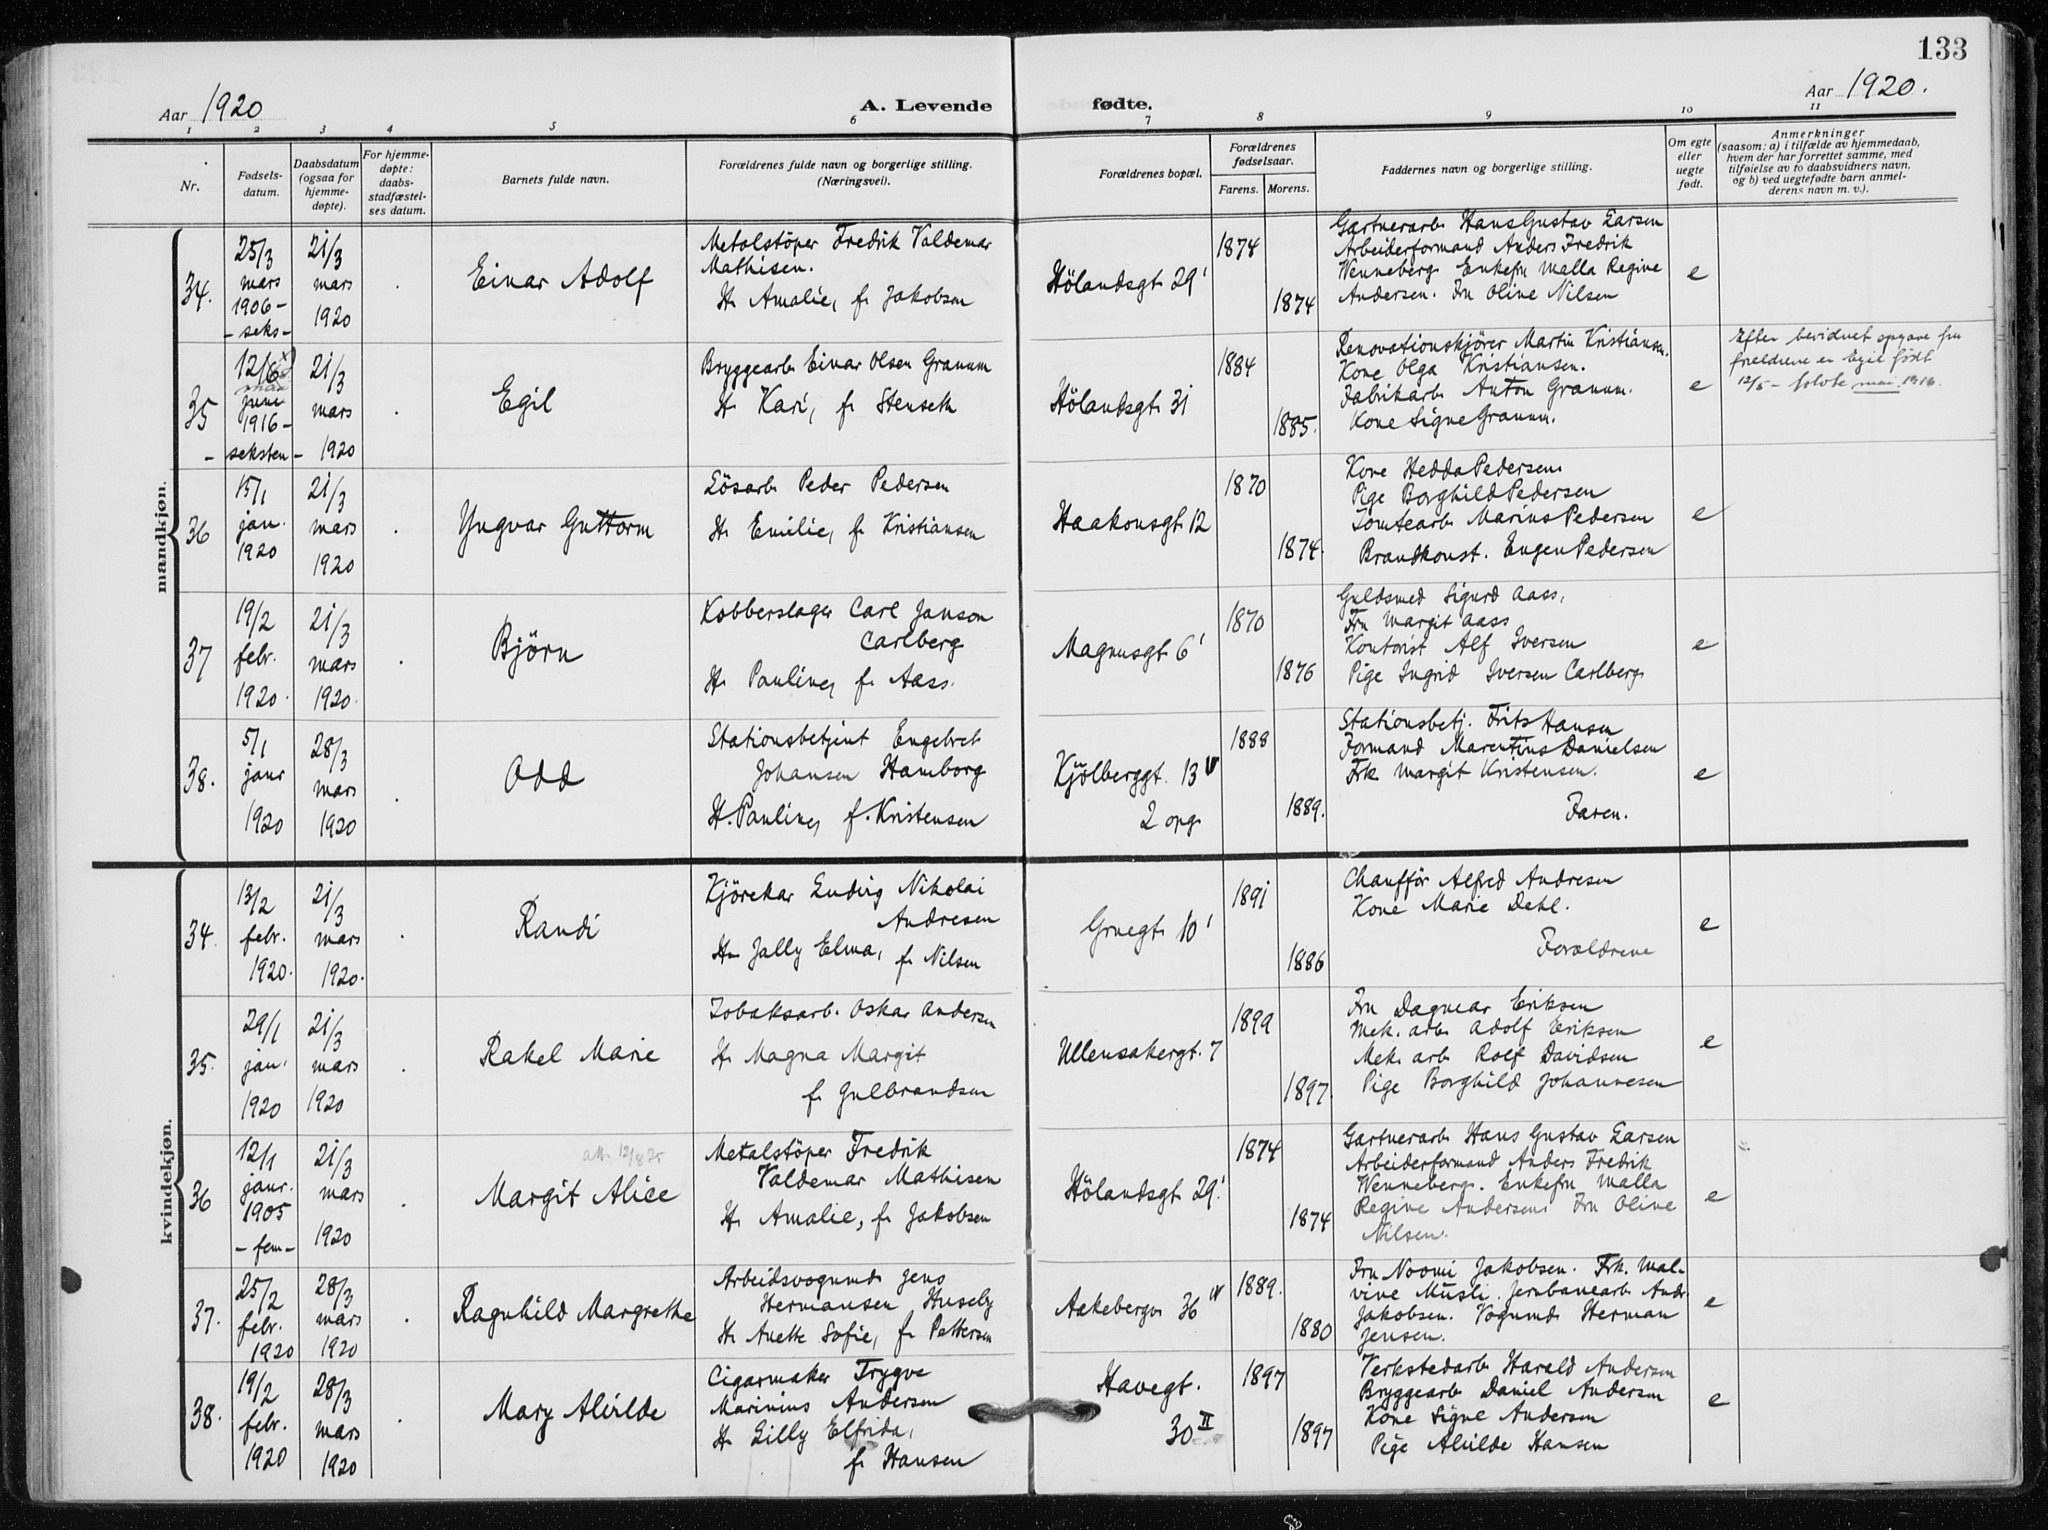 133
Aar 1920
A. Levende fødte.
Aar 1920.
1 2 3 4 5 6 7 8 9 10 11
Nr.
Fødsels-
datum.
Daabsdatum
(ogsaa for
hjemme-
døpte).
For hjemme-
døpte:
daabs-
stadfæstel-
ses datum.
Barnets fulde navn.
Forældrenes fulde navn og borgerlige stilling.
(Næringsvei).
Forældrenes bopæl.
Forældrenes
fødselsaar.
Farens. Morens.
Faddernes navn og borgerlige stilling.
Om egte
eller
uegte
født.
Anmerkninger
(saasom: a) i tilfælde av hjemmedaab,
hvem der har forrettet samme, med
tilføielse av to daabsvidners navn,
og b) ved uegtefødte barn anmel-
derens navn m. v.).
mandkjøn.
34.
25/3
mars
1906-
-seks-
21/3
mars
1920
Einar Adolf
Metalstöper Fredrik Valdemar
Mathisen.
H. Amalie, f. Jakobsen
Hölandsgt. 29 I
1874
1874
Gartnerarb. Hans Gustav Larsen
Arbeiderformand Anders Fredrik
Wenneberg. Enkefru Malla Regine
Andersen. Fru Olive Nilsen
e
35
12/6 x)
juni
1916-
- seksten -
21/3
mars
1920
Egil
Bryggearb. Einar Olsen Granum
H. Kari, f. Stenseth
Hölandsgt. 31
1884
1885.
Renovationskjörer Martin Kristiansen.
Kone Olga Kristiansen.
Fabrikarb. Anton Granum.
Kone Signe Granum.
e
Efter bevidnet opgave fra
forældrene er Egil født
12/5 - tolvte mai 1916.
36
15/1
jan.
1920
21/3
mars
1920
Yngvar Guttorm
Lösarb. Peder Pedersen
H. Emilie, f. Kristiansen
Haakonsgt. 12
1870
1874.
Kone Hedda Pedersen
Pige Borghild Pedersen
Tomtearb. Marius Pedersen
Brandkonst. Eugen Pedersen
e
37
19/2
febr.
1920.
21/3
mars
1920.
Björn
Kobberslager Carl Janson
Carlberg
H. Pauline, f. Aass.
Magnusgt. 6 I
1870
1876
Guldsmed Sigurd Aass,
Fru Margit Aass
Kontorist Alf Iversen
Pige Ingrid Iversen Carlberg.
e
38.
5/1
janr
1920
28/3
mars
1920
Odd
Stationsbetjent Engebret
Johansen Hamborg
H. Pauline, f. Kristensen
Kjölberggt. 13 IV
2 opg.
1888
1889.
Stationsbetj. Frits Hansen
Formand Marentius Danielsen
Frk Margit Kristensen.
Faren.
e
kvindekjøn.
34.
13/2
febr.
1920.
21/3
mars
1920.
Randi
Kjörekar Ludvig Nikolai
Andresen
H. Jally Elma, f. Nilsen
Gruegt. 10 I
1891
1886
Chaufför Alfred Andresen
Kone Marie Dehl.
Forældrene
e
35.
29/1
jan.
1920
21/3
mars
1920
Rakel Marie
Tobaksarb. Oskar Andersen
H. Magna Margit
f. Gulbrandsen
Ullensakergt. 7
1899
1897.
Fru Dagmar Eriksen
Mek. arb. Adolf Eriksen
Mek. arb. Rolf Davidsen
Pige Borghild Johannesen
e
36
12/1
janr.
1905
- fem -
21/3
mars
1920
att. 12/8 25
Margit Alice
Metalstöper Fredrik
Valdemar Mathisen
H. Amalie, f. Jakobsen
Hölandsgt. 29 I.
1874
1874
Gartnerarb. Hans Gustav Larsen
Arbeiderformand Anders Fredrik
Wenneberg. Enkefru Malla
Regine Andersen. Fru Olive
Nilsen.
e
37.
25/2
febr.
1920
28/3
mars
1920
Ragnhild Margrethe
Arbeidsvognmd. Jens
Hermansen Huseby
H. Anette Sofie, f. Pettersen
Aakebergv. 36 IV
1889.
1880
Fru Noomi Jakobsen. Frk. Mal-
vine Musli. Jernbanearb. Andr.
Jakobsen. Vognmd. Herman
Jensen.
e
38.
19/2
febr.
1920
28/3
mars
1920
Mary Alvilde
Cigarmaker Trygve
Marinius Andersen
H. Lilly Elfrida,
f. Hansen
Havegt.
30 II
1897
1897
Verkstedarb. Harald Andersen
Bryggearb. Daniel Andersen
Kone Signe Andersen
Pige Alvilde Hansen
e